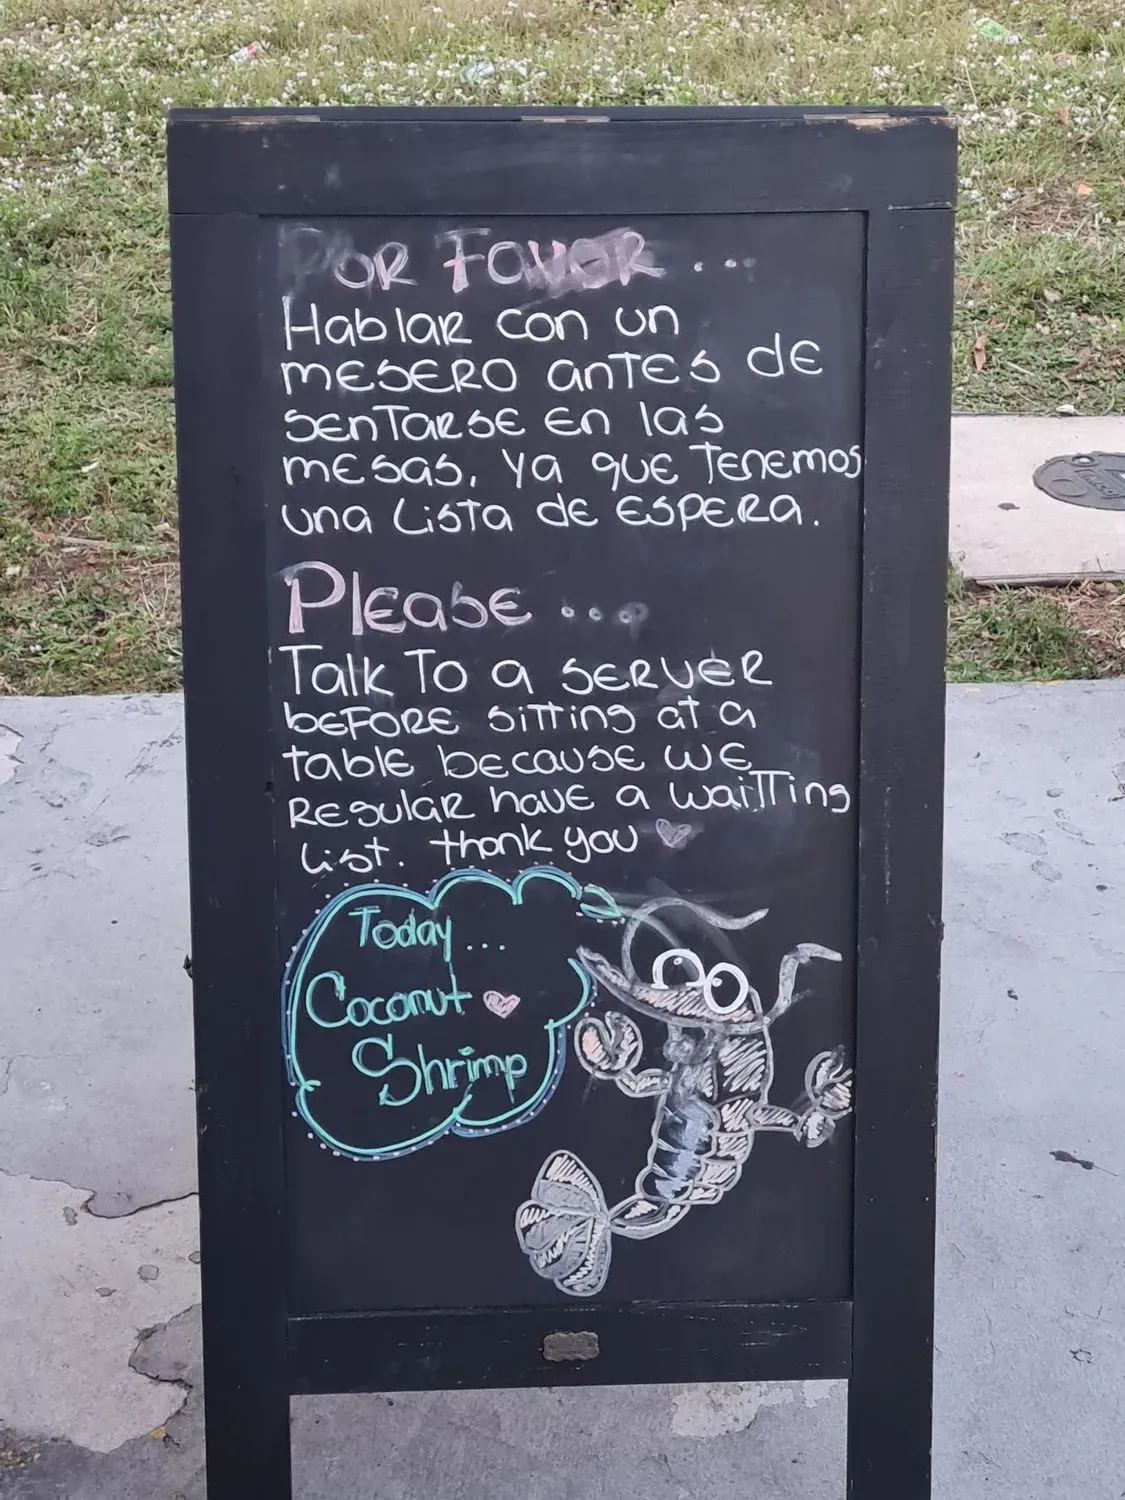 Por Favor...
Hablar con un
mesero antes de
sentarse en las
mesas, ya que tenemos
una Lista de espera.
Please...
Talk To a server
before sitting at a
table because we
Regular have a waitting
List. thank you
Today...
Coconut
Shrimp